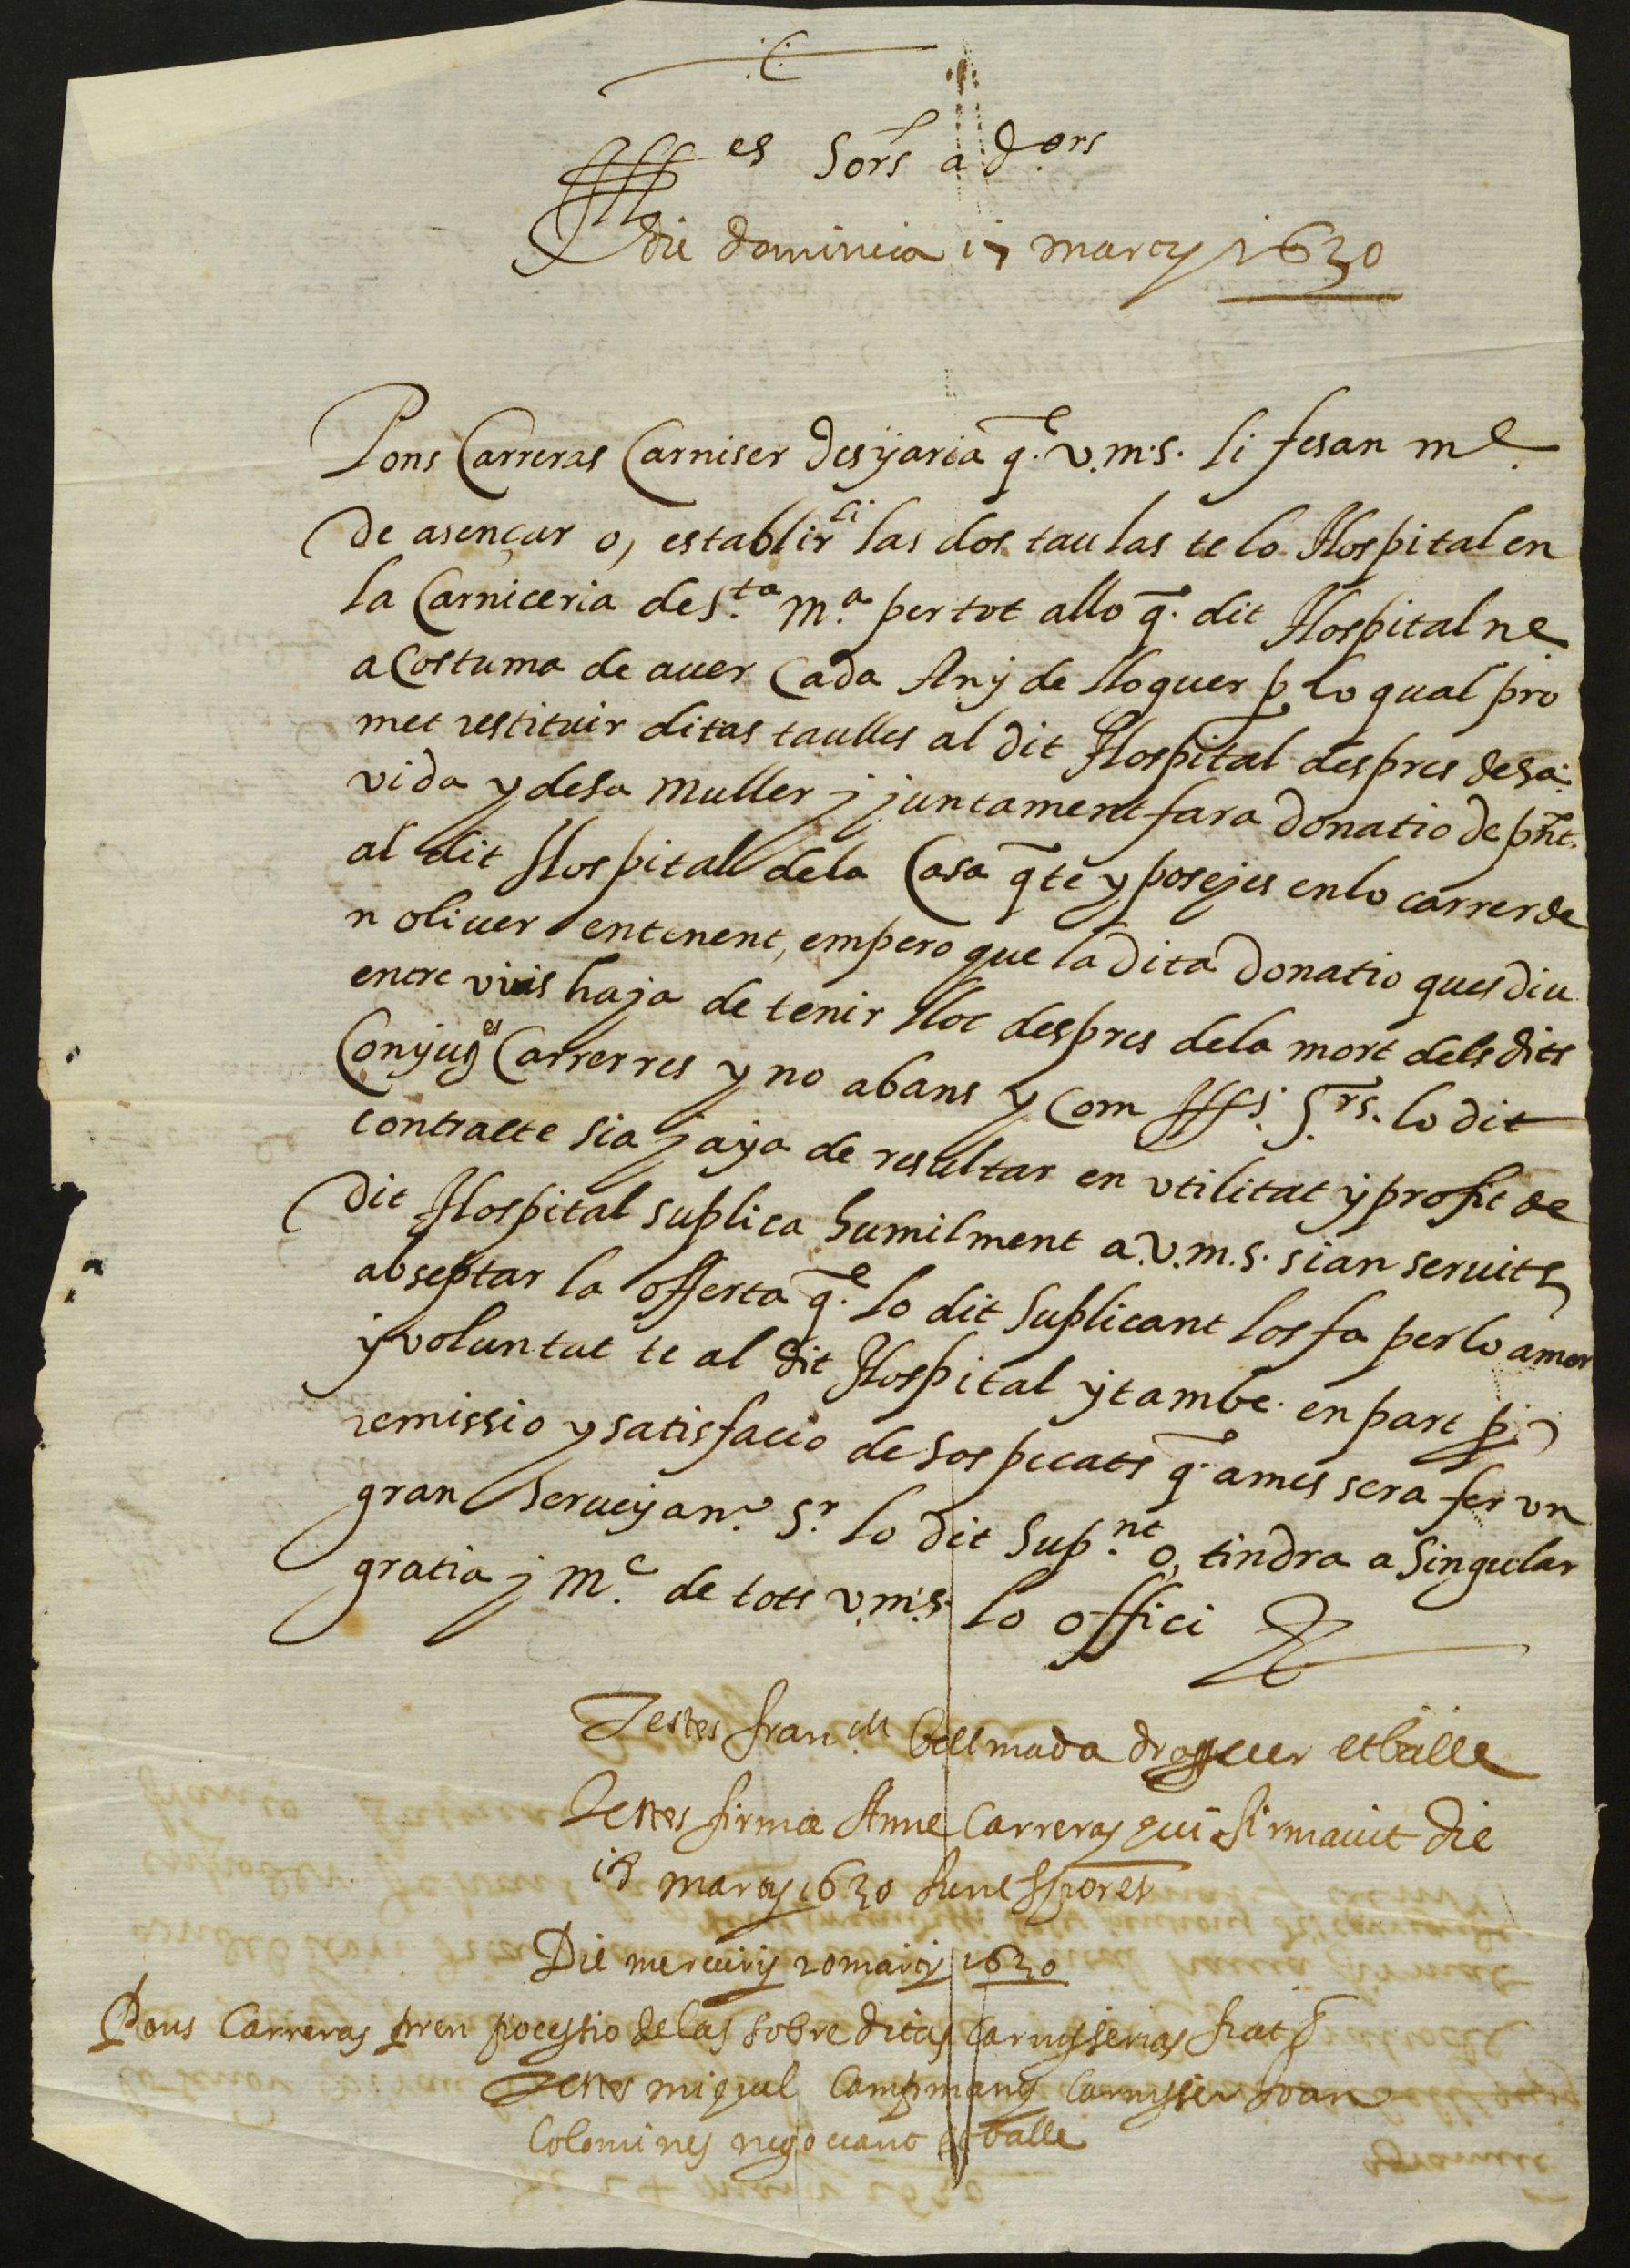 es Sors ad.ors
die dominica 17 marcy 1630
Pons Carreras Carniser desijaria q.e v.m.s. li fesan m.e
de asençar o, establir li las dos taulas te lo Hospital en
la Carniceria de S.ta M.a per tot allo q. dit Hospital ne
acostuma de auer Cada Anÿ de lloguer p lo qual pro
met restituir ditas taulles al dit Hospital despres de sa
vida y de sa muller j juntament fara donatio de pnt.
al dit Hospital de la Casa q te y posejes en lo carrer de
n oliuer entenent, empero que la dita donatio ques diu
entre viuis haja de tenir lloc despres de la mort dels dits
Conjuges Carrerres y no abans y com Illss. S.rs. lo dit
contracte sia j aja de resultar en vtilitat ÿ profit de
dit Hospital suplica humilment a v.m.s. sian seruits
abseptar la offerta q.e lo dit suplicant los fa per lo amor
ÿ voluntat te al dit Hospital ÿ tambe en part p
remissio y satisfacio de sos pecats q. ames sera fer vn
gran serueÿ a n.e S.r lo dit Sup.nt o, tindra a singular
gratia j m.e de tots v.m.s. lo offici
Testes fran.cu bellmada droguer et balle
Testes firmæ Anne Carreras qui firmauit die
18 marcy 1630 sunt
Die mercurij 20 marcy 1630
Pons Carreras pren pocessio de las sobre ditas Carnisserias fiat
Testes miquel Campmany Carnisser Joan
Colomines negociant et balle